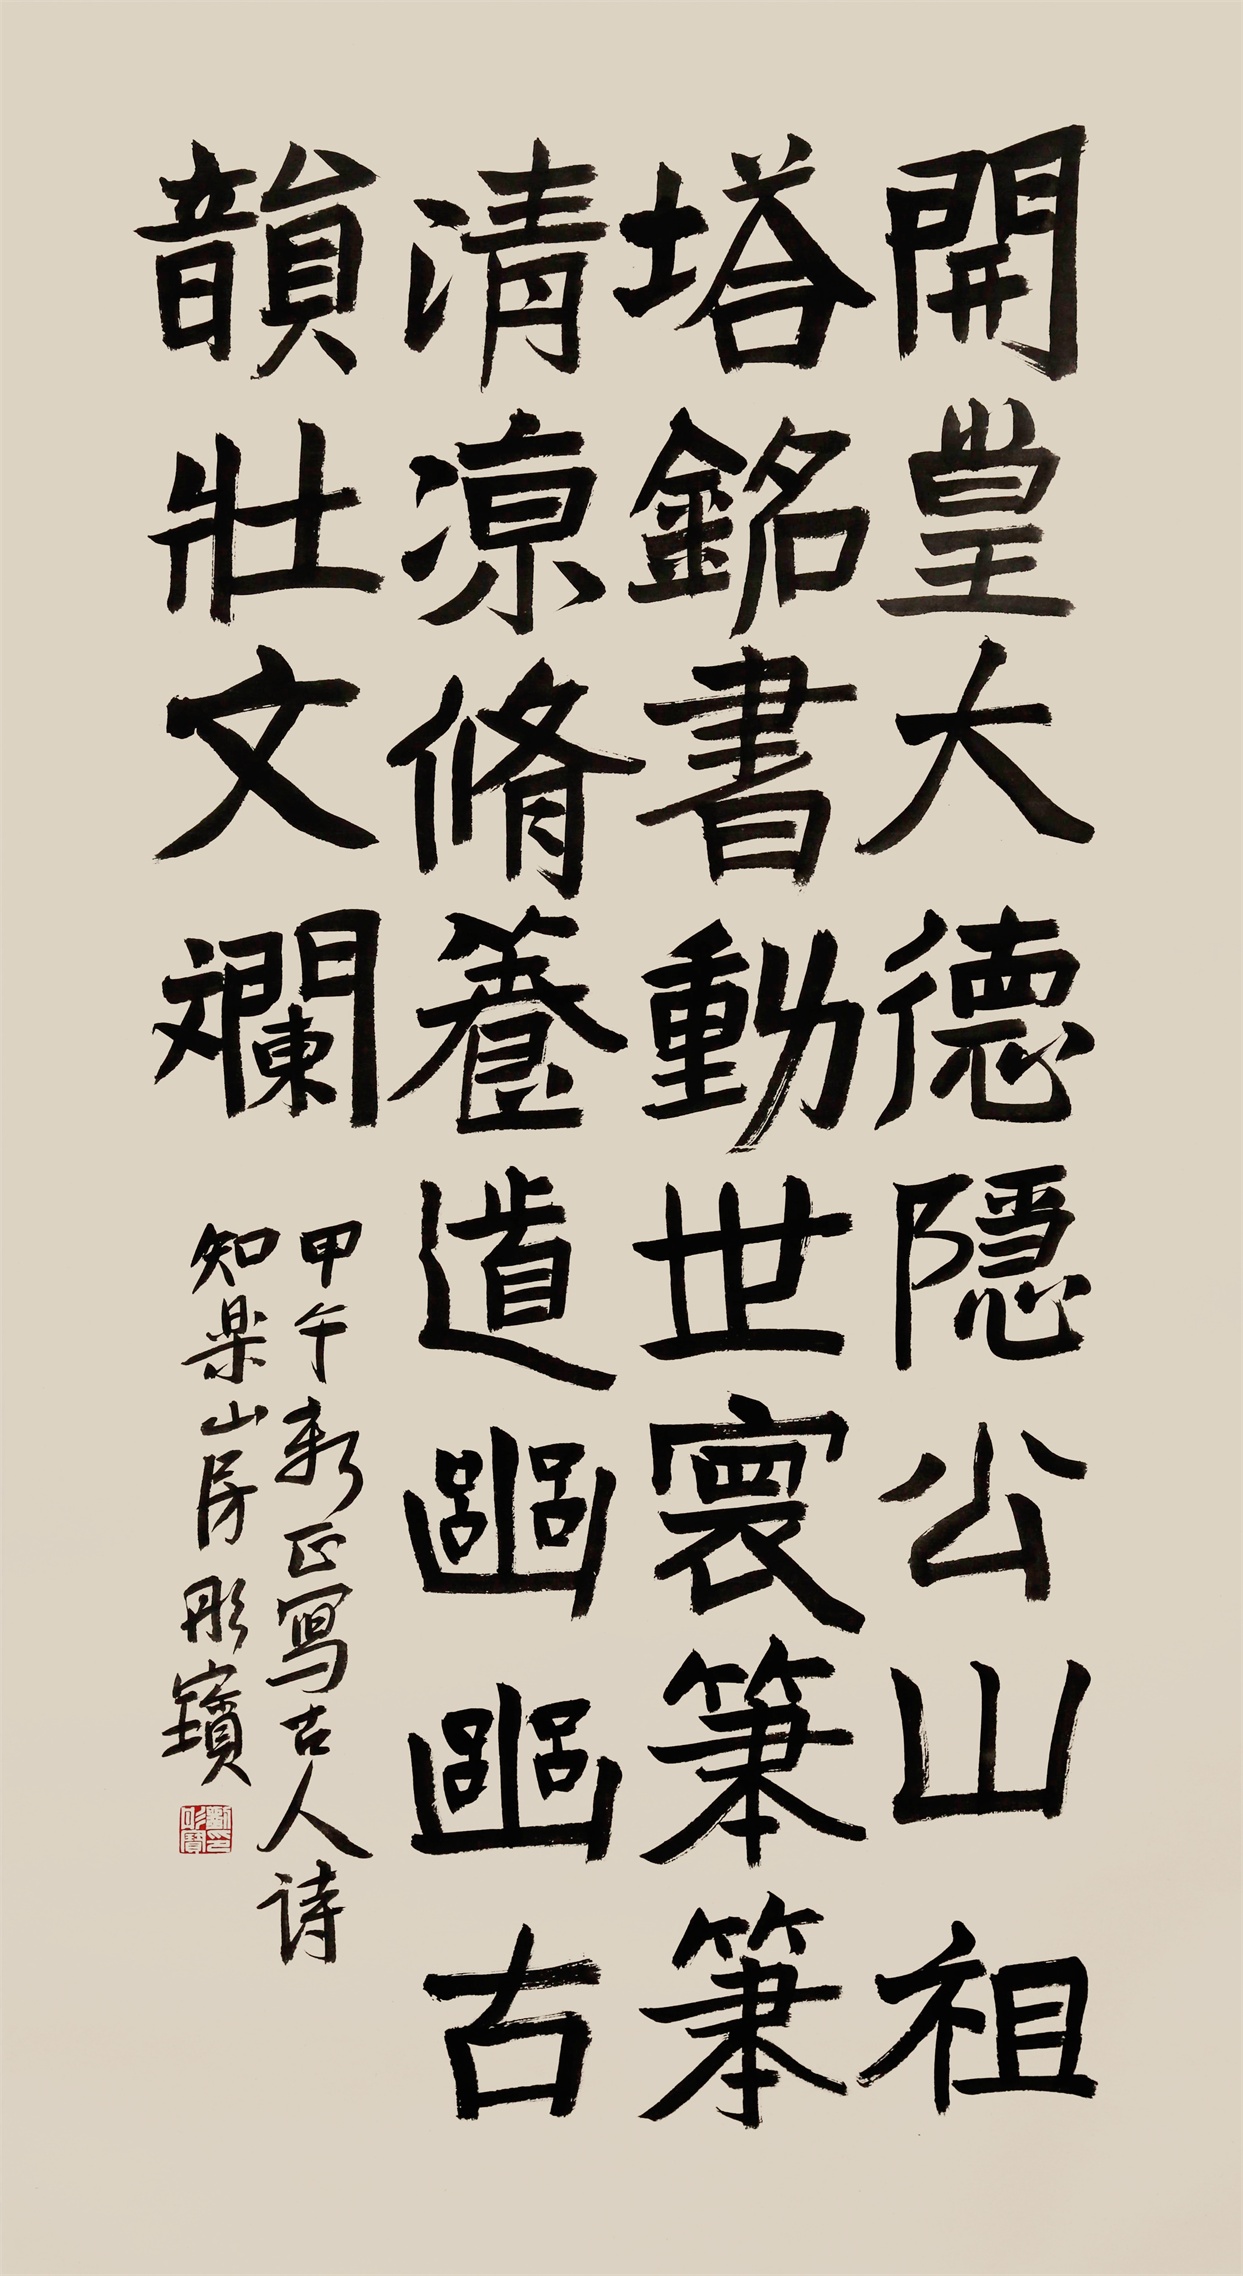 開皇大德隱公山祖
塔銘書動世寰筆筆
清凉脩養道幽幽古
韻壯文斕
甲午新正寫古人诗
知楽山房彤寶